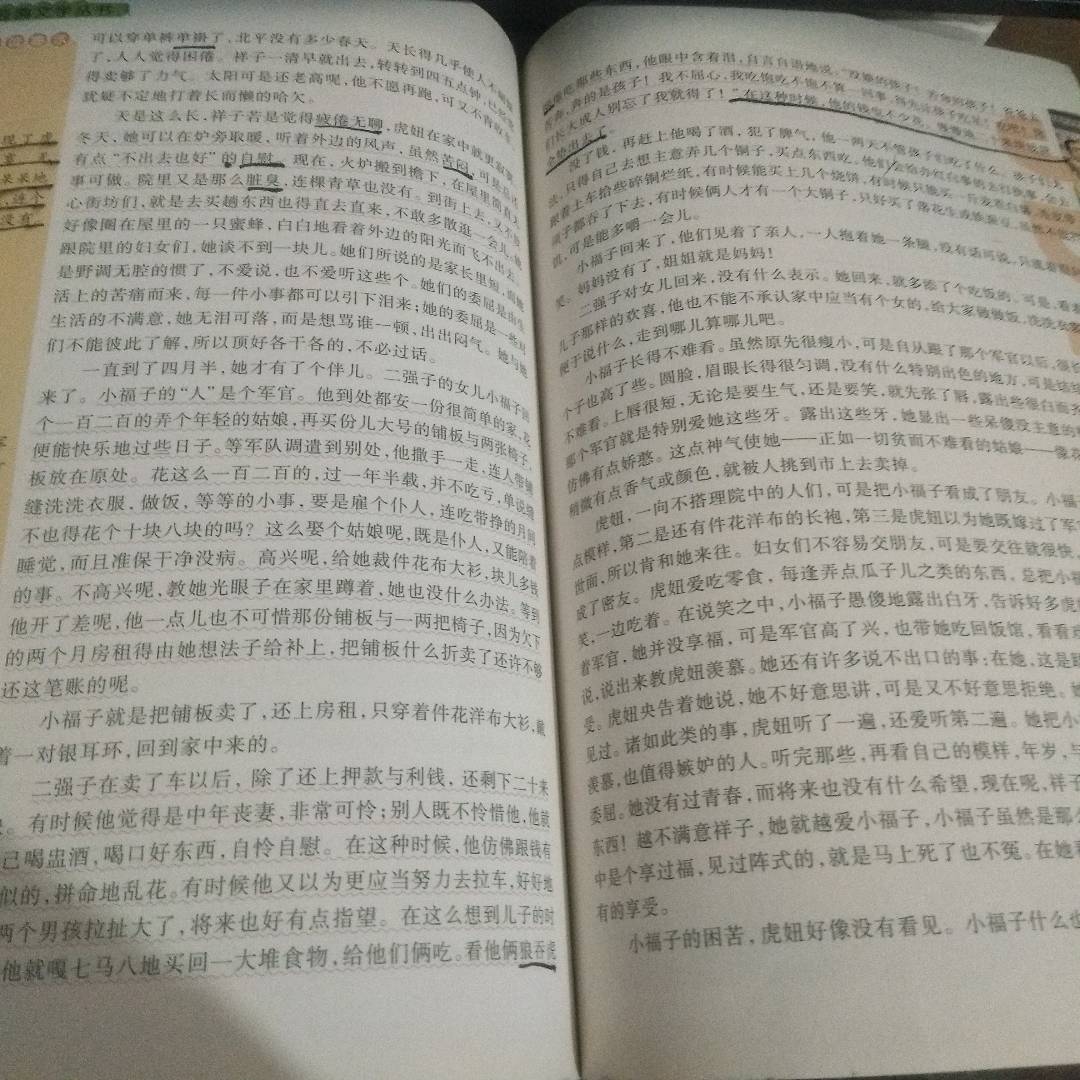 可以穿单裤单褂了，北平没有多少春天。天长得几乎使人不耐烦
了，人人觉得困倦。祥子一清早就出去，转转到四五点钟，已经觉
得卖够了力气。太阳可是还老高呢，他不愿再跑，可又不肯收车，
犹疑不定地打着长而懒的哈欠。
天是这么长，祥子若是觉得疲倦无聊，虎妞在家中就更寂寞。
冬天，她可以在炉旁取暖，听着外边的风声，虽然苦闷，可是总还
有点“不出去也好”的自慰。现在，火炉搬到檐下，在屋里简直无
事可做。院里又是那么脏臭，连棵青草也没有。到街上去，又不放
心街坊们，就是去买趟东西也得直去直来，不敢多散逛一会儿。她
好像圈在屋里的一只蜜蜂，白白地看着外边的阳光而飞不出去。
跟院里的妇女们，她谈不到一块儿。她们所说的是家长里短，而她
是野调无腔的惯了，不爱说，也不爱听这些个。她们的委屈是由生
活上的苦痛而来，每一件小事都可以引下泪来；她的委屈是一些对
生活的不满意，她无泪可落，而是想骂谁一顿，出出闷气。她与她
们不能彼此了解，所以顶好各干各的，不必过话。
一直到了四月半，她才有了个伴儿。二强子的女儿小福子回
来了。小福子的“人”是个军官。他到处都安一份很简单的家，花
个一百二百的弄个年轻的姑娘，再买份儿大号的铺板与两张椅子，
便能快乐地过些日子。等军队调遣到别处，他撒手一走，连人带铺
板放在原处。花这么一百二百的，过一年半载，并不吃亏，单说缝
缝洗洗衣服，做饭，等等的小事，要是雇个仆人，连吃带挣的月间
不也得花个十块八块的吗？这么娶个姑娘呢，既是仆人，又能陪着
睡觉，而且准保干净没病。高兴呢，给她裁件花布大衫，块儿多钱
的事。不高兴呢，教她光眼子在家里蹲着，她也没什么办法。等到
他开了差呢，他一点儿也不可惜那份铺板与一两把椅子，因为欠下
的两个月房租得由她想法子给补上，把铺板什么折卖了还许不够
还这笔账的呢。
小福子就是把铺板卖了，还上房租，只穿着件花洋布大衫，戴
着一对银耳环，回到家中来的。
二强子在卖了车以后，除了还上押款与利钱，还剩下二十来
块。有时候他觉得是中年丧妻，非常可怜；别人既不怜惜他，他就
己喝盅酒，喝口好东西，自怜自慰。在这种时候，他仿佛跟钱有
似的，拼命地乱花。有时候他又以为更应当努力去拉车，好好地
两个男孩拉扯大了，将来也好有点指望。在这么想到儿子的时
他就嘎七马八地买回一大堆食物，给他们俩吃。看他俩狼吞虎
吃那些东西，他眼中含着泪，自言自语地说：“没娘的孩子！苦命的孩子！爸爸
苦奔，奔的是孩子！我不屈心，我吃饱吃不饱不算一回事，得先让孩子吃足！吃吧！
们长大成人别忘了我就得了！”在这种时候，他的钱也不少花，慢慢地
全垫出去了。
没了钱，再赶上他喝了酒，犯了脾气，他一两天不管孩子们吃了什么。孩子们无
法，只得自己去想主意弄几个铜子，买点东西吃。他们会给办红白事的去打执事，会去
跟着土车拾些碎铜烂纸，有时候能买上几个烧饼，有时候只能买一斤麦茬白薯，连皮带
须子都吞了下去，有时候俩人才有一个大铜子，只好买了落花生或铁蚕豆，虽然不能
饥，可是能多嚼一会儿。
小福子回来了，他们见着了亲人，一人抱着她一条腿，没有话可说，只流着泪
笑。妈妈没有了，姐姐就是妈妈！
二强子对女儿回来，没有什么表示。她回来，就多添了个吃饭的。可是，看着
儿子那样的欢喜，他也不能不承认家中应当有个女的，给大家做做饭，洗洗衣
便于说什么，走到哪儿算哪儿吧。
小福子长得不难看。虽然原先很瘦小，可是自从跟了那个军官以后，很
个子也高了些。圆脸，眉眼长得很匀调，没有什么特别出色的地方，可是结结
不难看。上唇很短，无论是要生气，还是要笑，就先张了唇，露出些很白而齐
那个军官就是特别爱她这些牙。露出这些牙，她显出一些呆傻没主意的
仿佛有点娇憨。这点神气使她——正如一切贫而不难看的姑娘——像花
稍微有点香气或颜色，就被人挑到市上去卖掉。
虎妞，一向不搭理院中的人们，可是把小福子看成了朋友。小福
点模样，第二是还有件花洋布的长袍，第三是虎妞以为她既嫁过了军
世面，所以肯和她来往。妇女们不容易交朋友，可是要交往就很快，
成了密友。虎妞爱吃零食，每逢弄点瓜子儿之类的东西，总把小福
笑，一边吃着。在说笑之中，小福子愚傻地露出白牙，告诉好多虎
着军官，她并没享福，可是军官高了兴，也带她吃回饭馆，看看
说，说出来教虎妞羡慕。她还有许多说不出口的事：在她，这是
受。虎妞央告着她说，她不好意思讲，可是又不好意思拒绝。她
见过。诸如此类的事，虎妞听了一遍，还爱听第二遍。她把小
羡慕，也值得嫉妒的人。听完那些，再看自己的模样，年岁，与
委屈。她没有过青春，而将来也没有什么希望，现在呢，祥子
东西！越不满意祥子，她就越爱小福子，小福子虽然是那么
中是个享过福，见过阵式的，就是马上死了也不冤。在她看
有的享受。
小福子的困苦，虎妞好像没有看见。小福子什么也